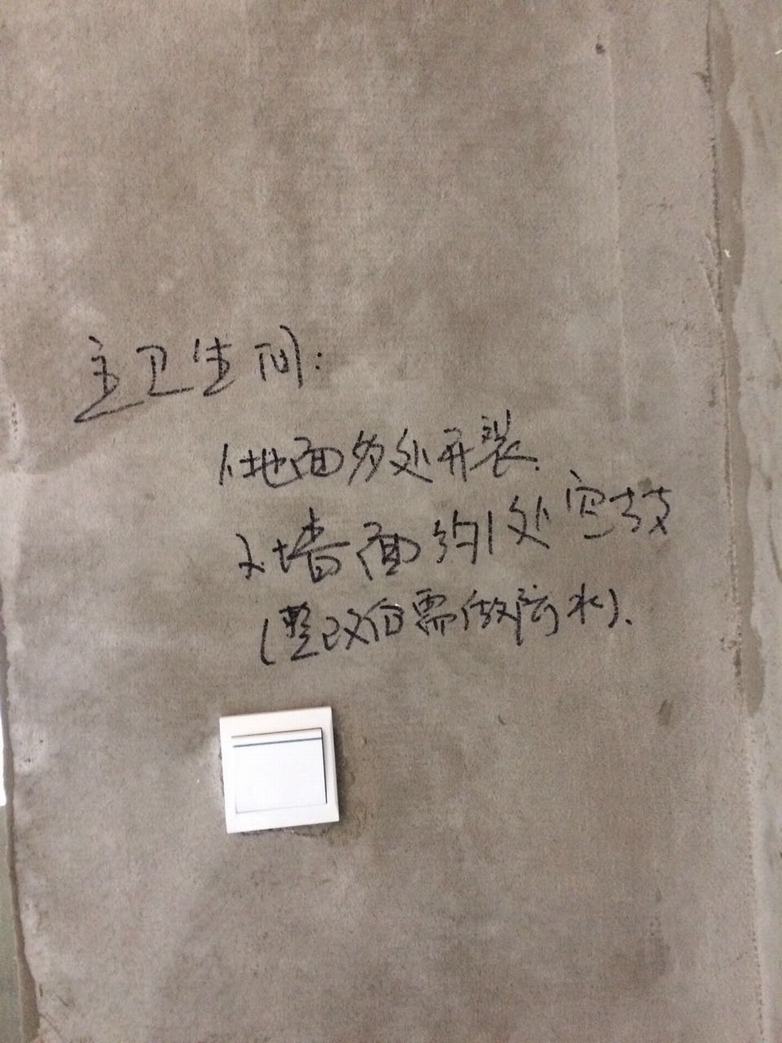 主卫生间:
1、地面多处开裂.
2、墙面约1处空鼓
(整改后需做防水).